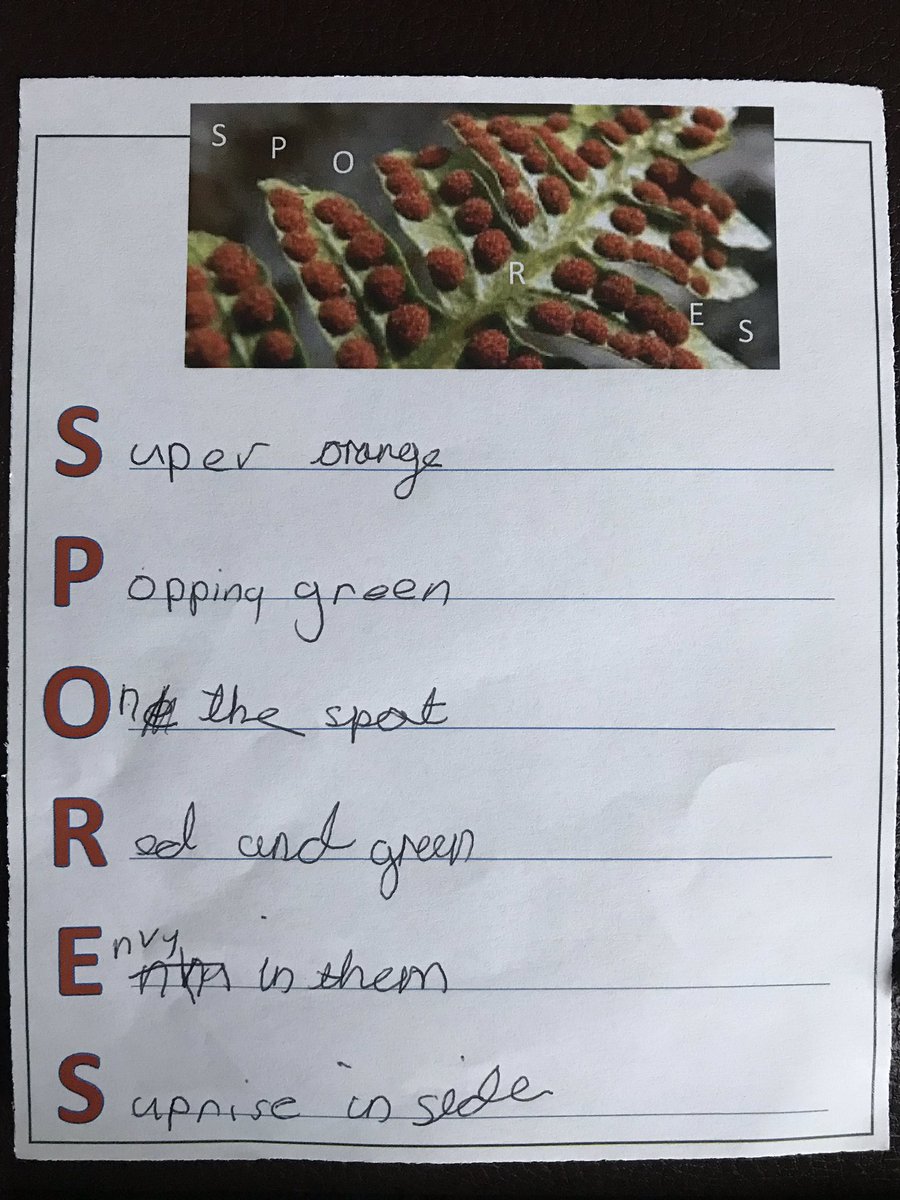 S P O R E S
Super orange
Popping green
On the spot
Red and green
Envy in them
Suprise in side